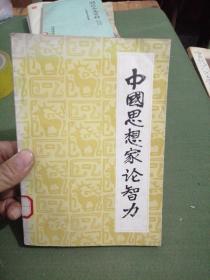 中國思想家论智力